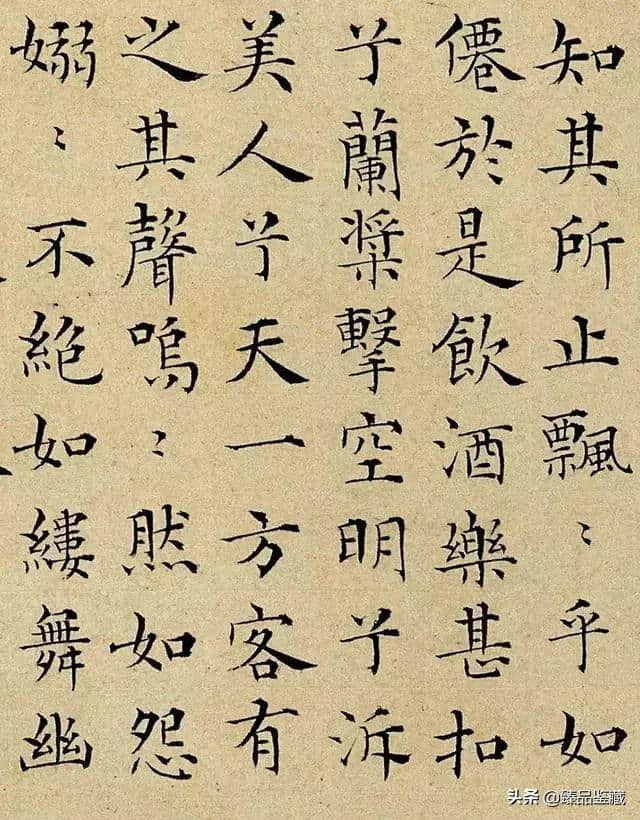 知其所止飄〻乎如
僊於是飲酒樂甚扣
兮蘭槳擊空明兮泝
美人兮天一方客有
之其聲嗚〻然如怨
嫋〻不絶如縷舞幽
头条 @臻品鉴藏